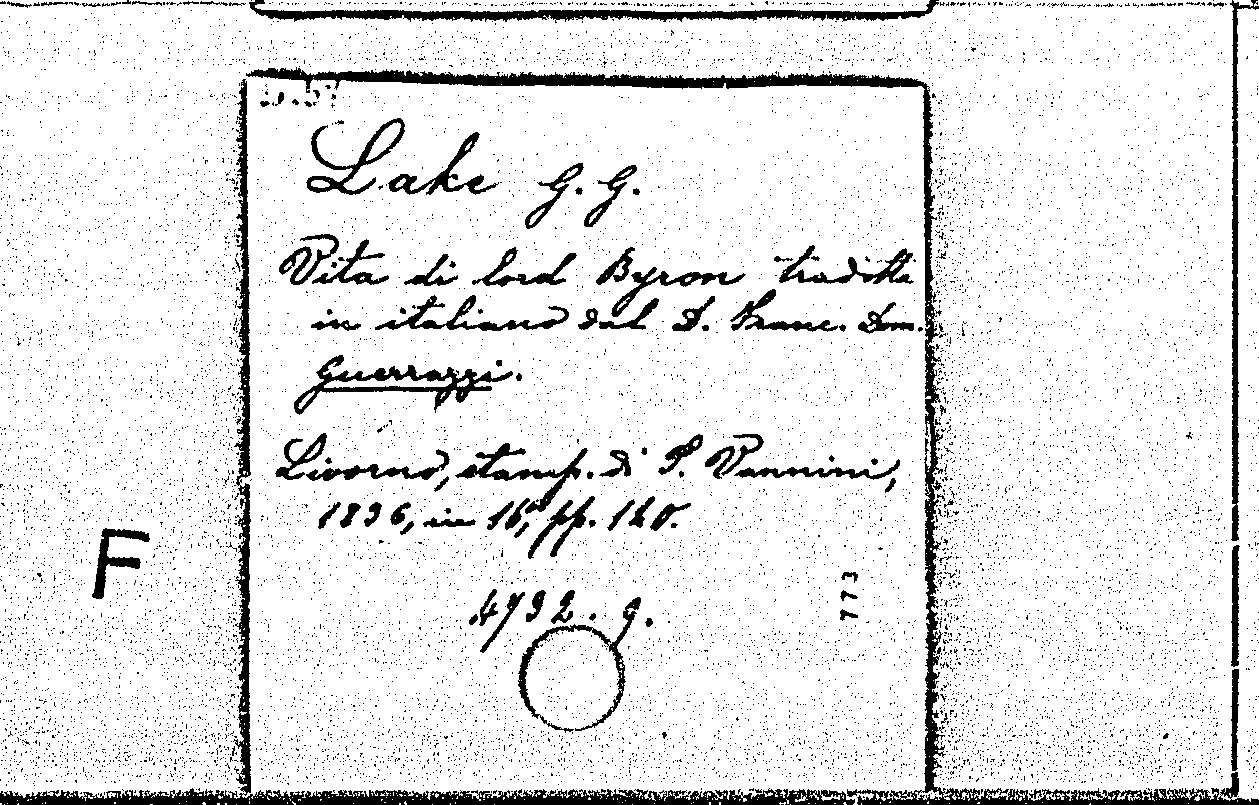 Lake G. G.
Vita di lord Byron tradotta
in italiano dal D. Franc. Dom.
Guerrazzi.
Livorno, stamp. di P. Vannini,
1836, in 16°, pp. 120.
F
4792. g.
773